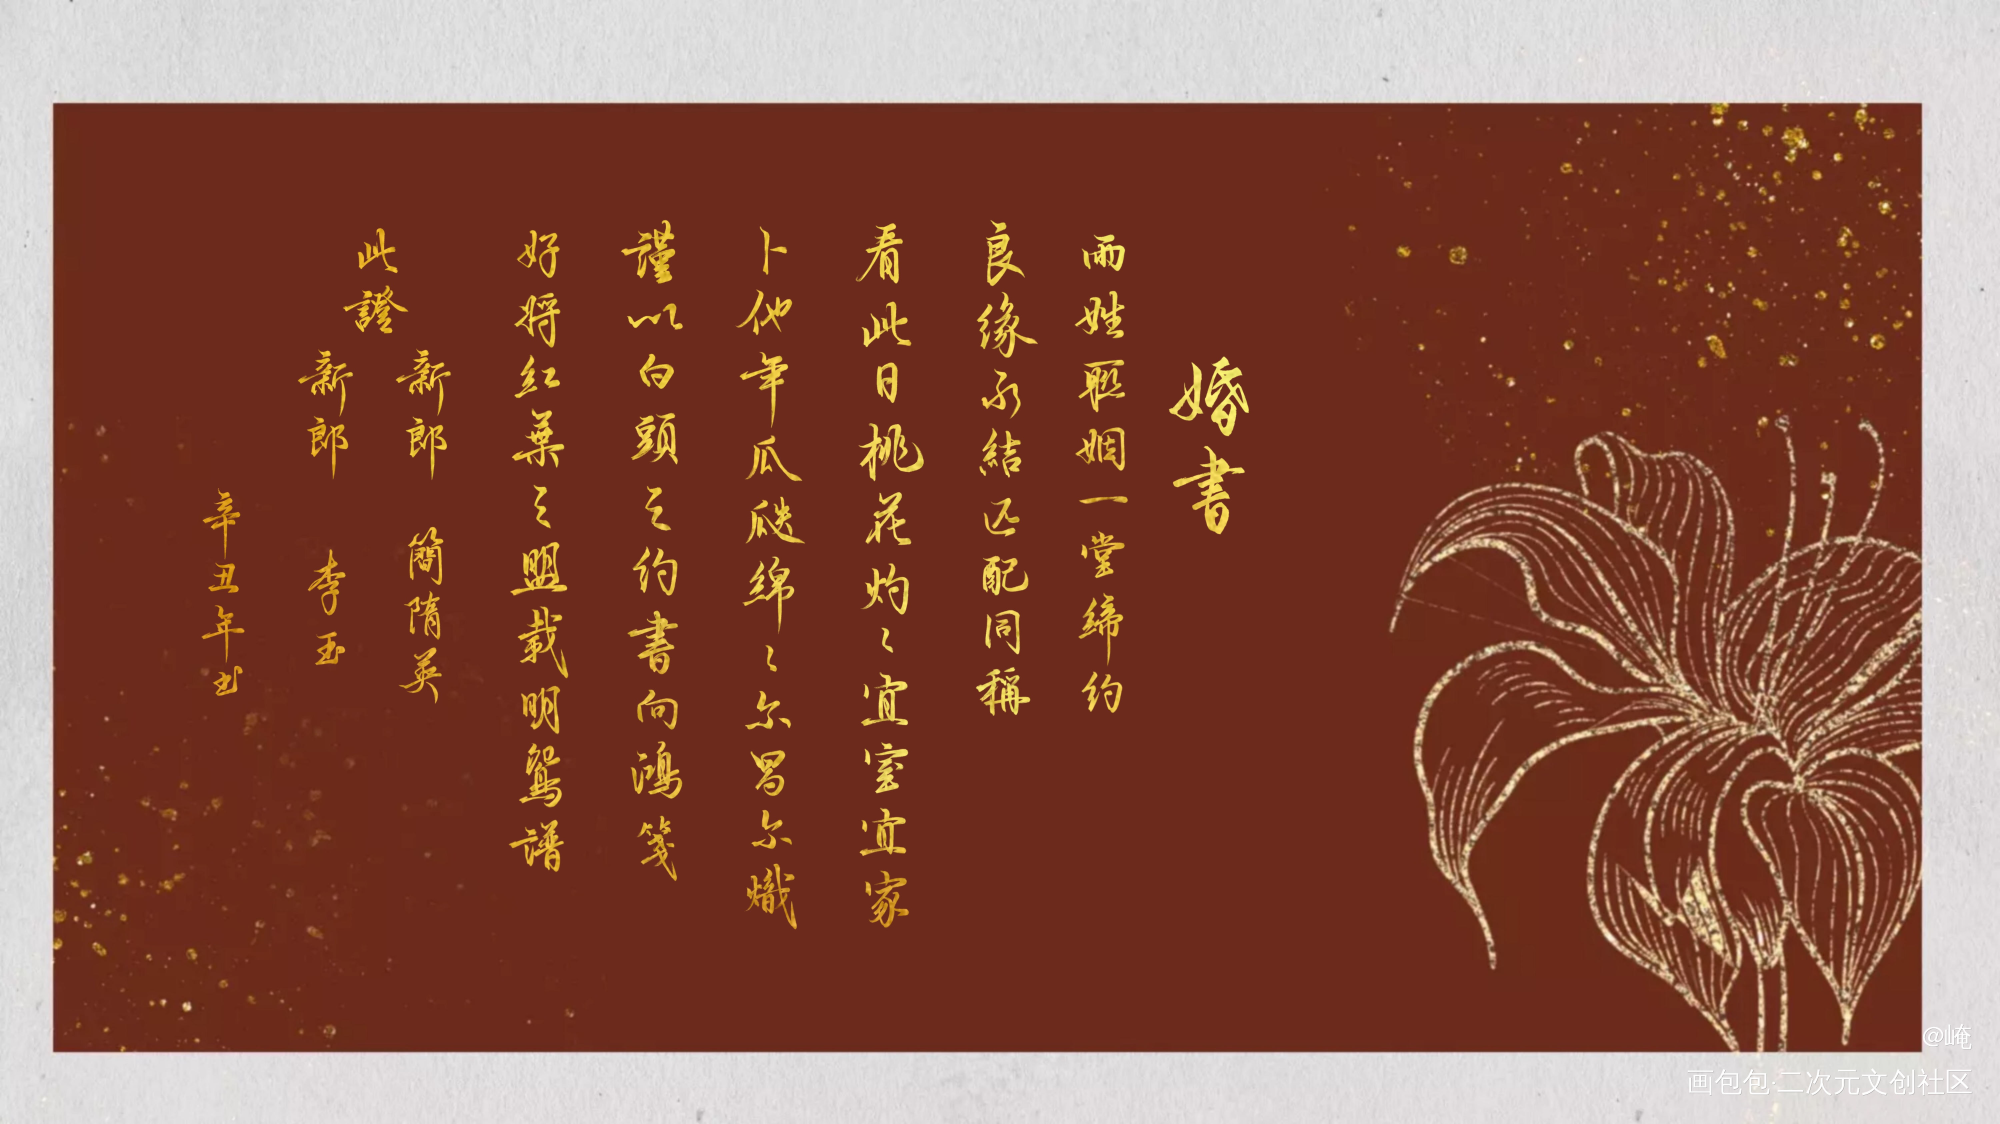 婚書
兩姓聯姻一堂締约
良缘永結匹配同稱
看此日桃花灼灼宜室宜家
卜他年瓜瓞綿綿尔昌尔熾
謹以白頭之约書向鴻箋
好將红葉之盟载明鴛譜
此證
新郎 簡隋英
新郎 李玉
辛丑年书
@崦
画包包·二次元文创社区